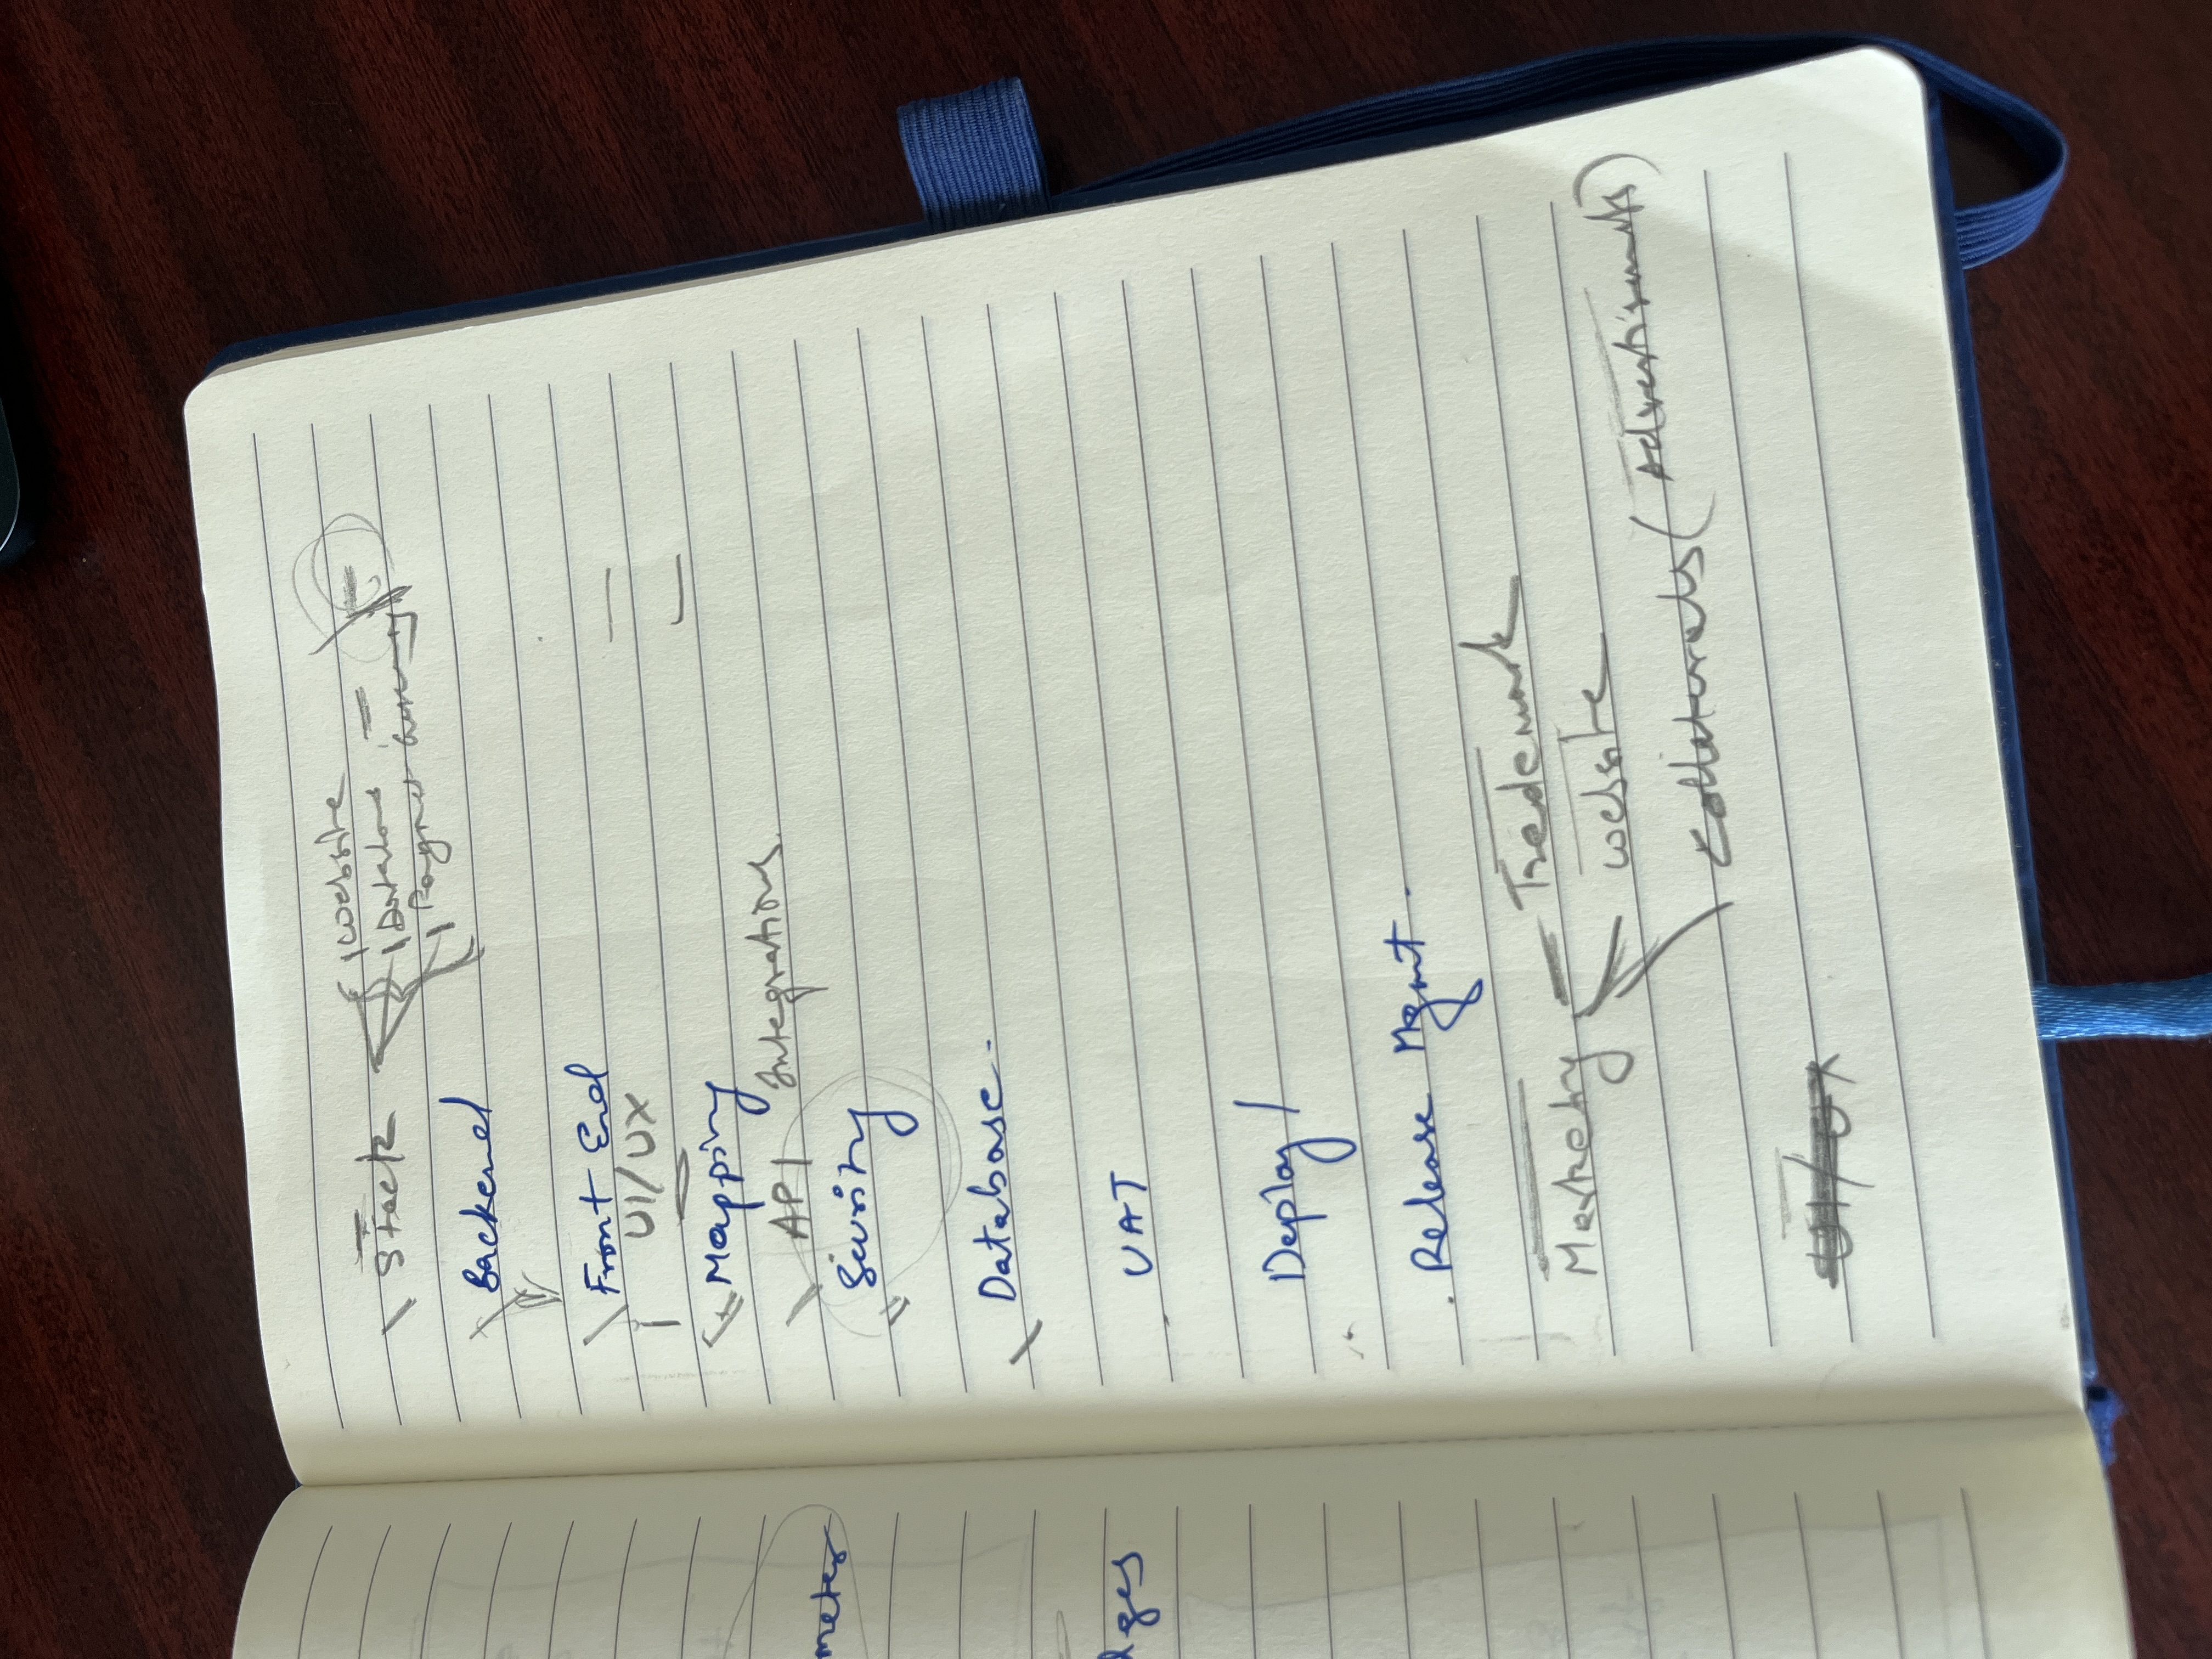 Stack
website
Database
Payment
Backend
Front End
UI/UX
Mapping
API Integrations
Security
Database
UAT
Deploy/
Release Mgmt.
Marketing
Trademark
website
Collaterals (Advertisements)
UI/UX
meter
dges